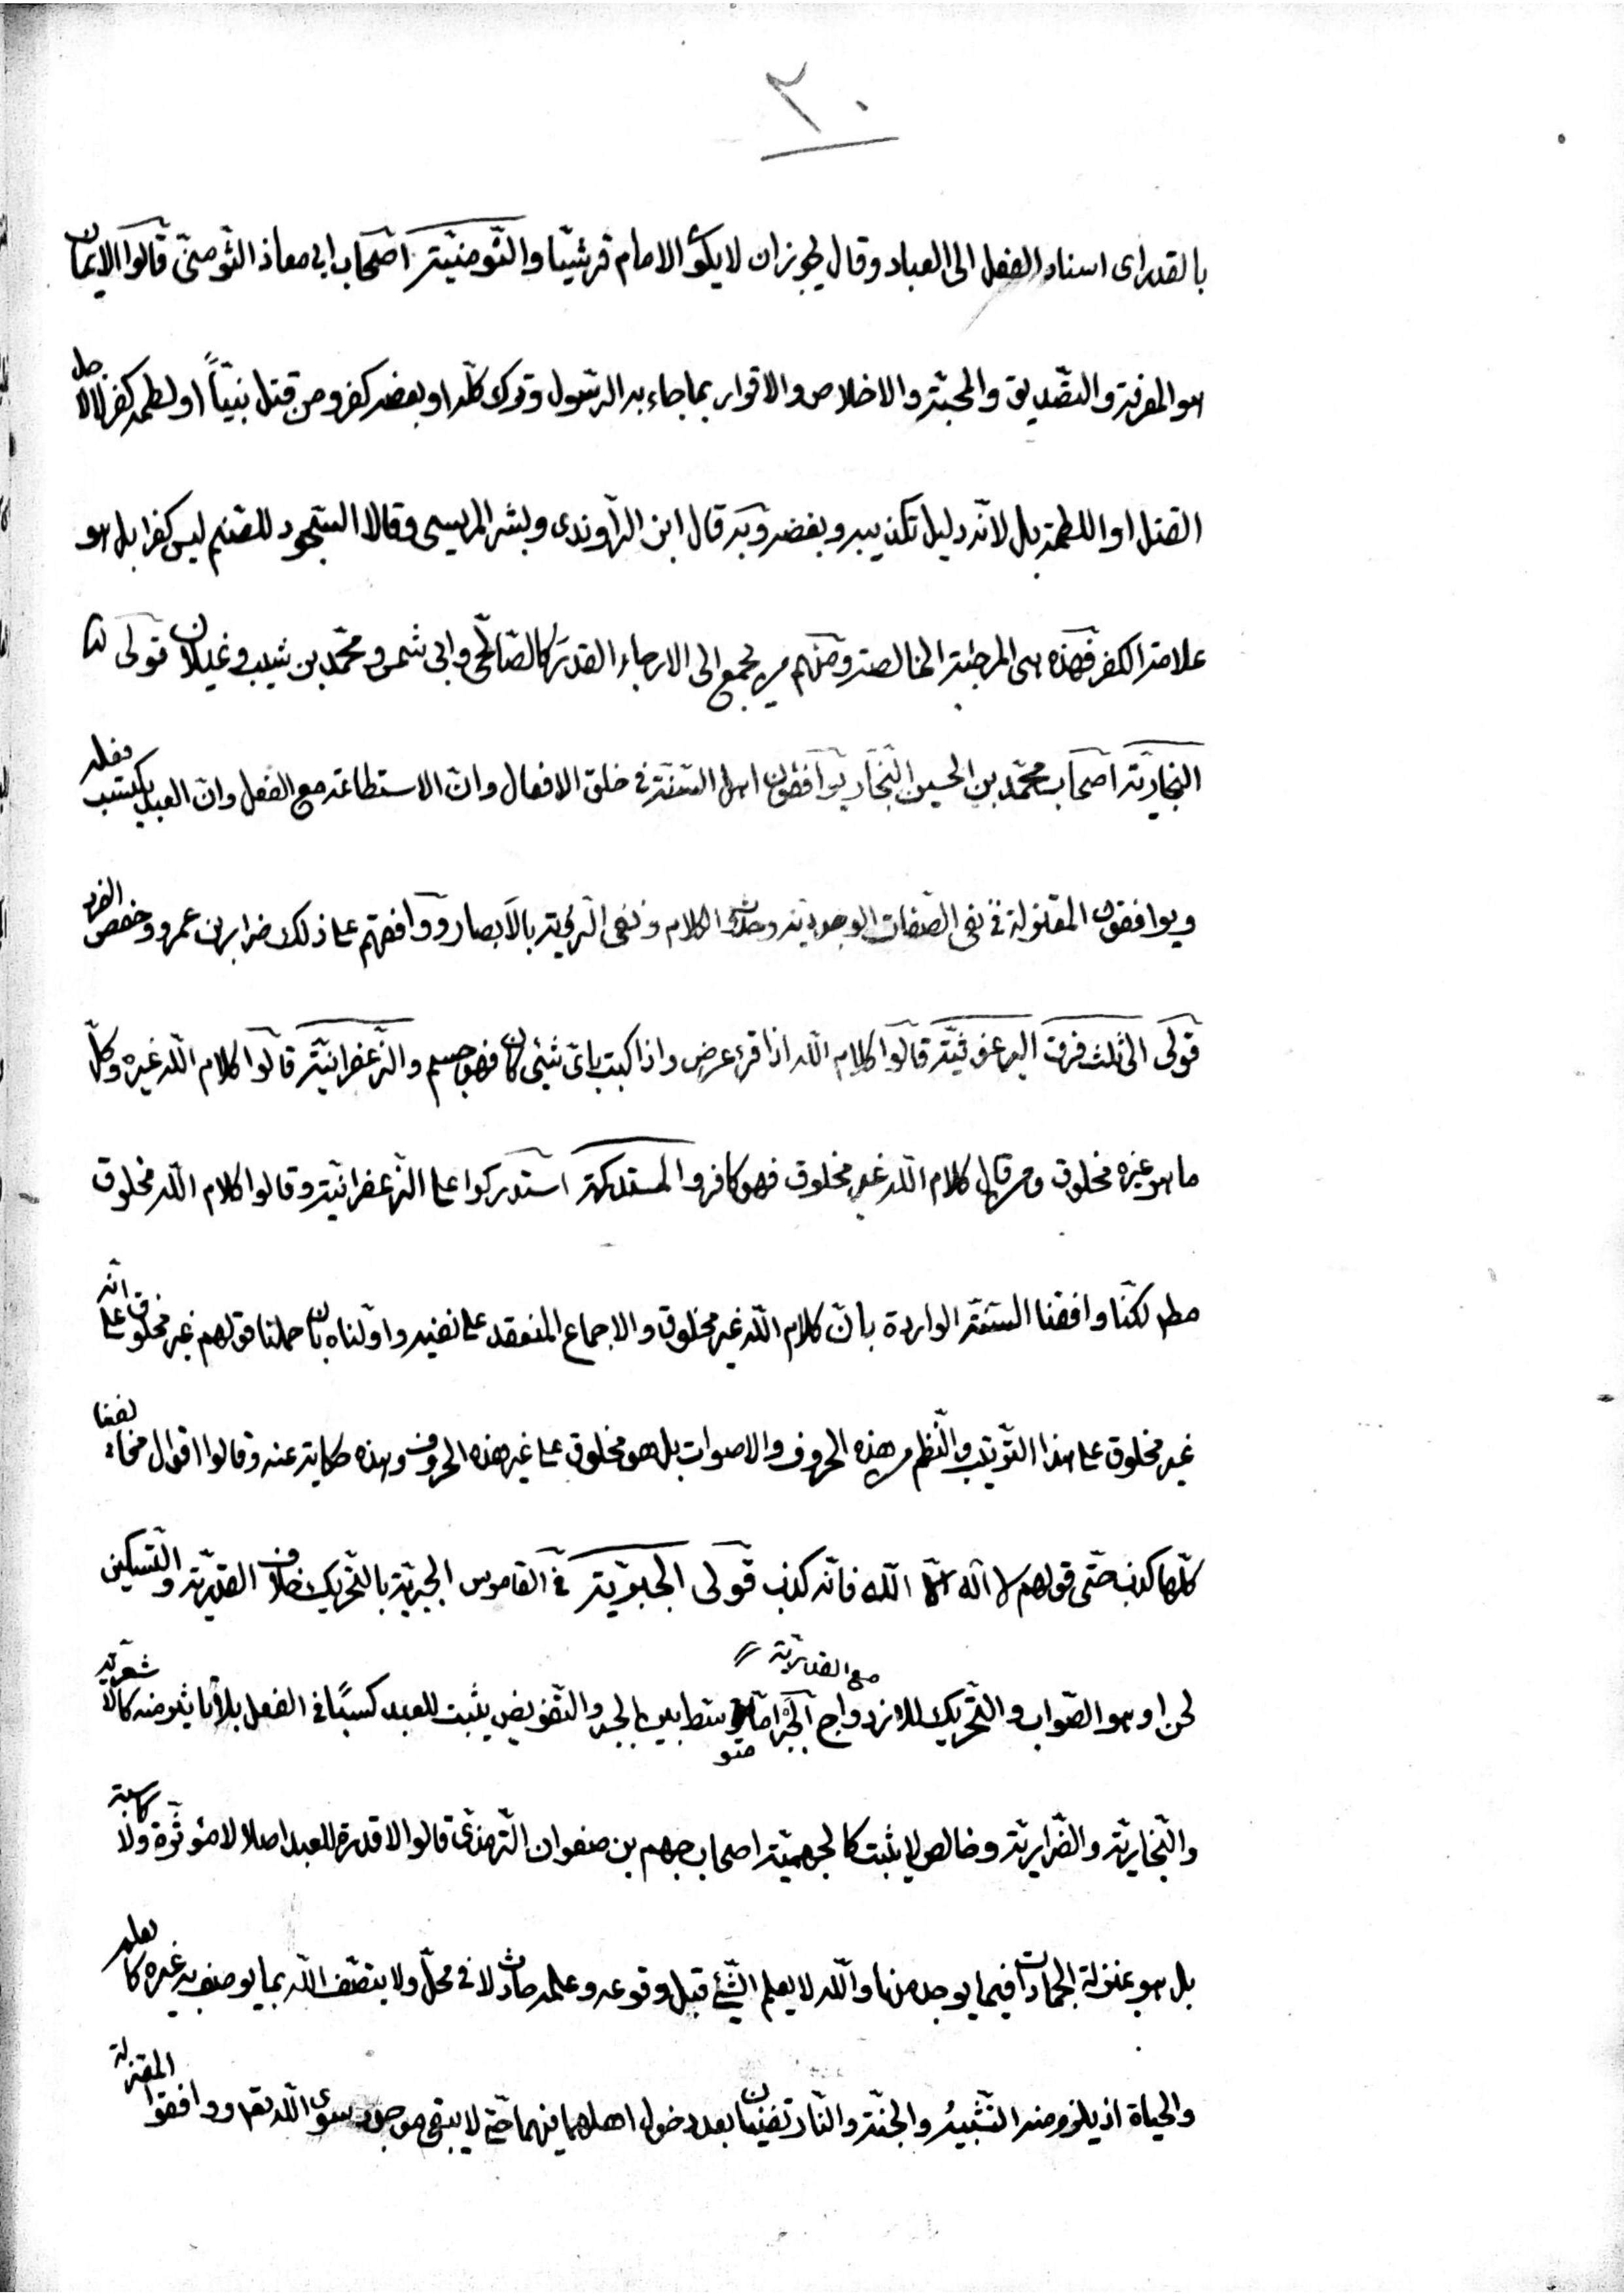 ٣٠
بالقدر اى اسناد الفعل الى العباد وقال يجوز ان لا يكون الامام قرشيّا والثّومنيّة اصحاب ابي معاذ الثّومنىّ قالوا الايمان
هو المعرفة والتّصديق والمحبّة والاخلاص والاقرار بما جاء به الرّسول وترك كلّه او بعضه كفر ومن قتل نبيّاً او لطمه كفر لا لاجل
القتل او اللطمة بل لانّه دليل تكذيبه وبغضه وبه قال ابن الرّاوندى وبشر المريسى وقالا السّجود للصّنم ليس كفرا بل هو
علامة الكفر فهذه هى المرجئة الخالصة ومنهم من جمع الى الارجاء القدر كالصّالحىّ وابى شمر ومحمّد بن شبيب وغيلان قولى
النجاريّة اصحاب محمّد بن الحسين النّجّار يوافقون اهل السّنّة فى خلق الافعال وانّ الاستطاعة مع الفعل وانّ العبد يكتسب فعله
ويوافقون المعتزلة فى نفى الصّفات الوجوديّة وحدوث الكلام ونفى الرّؤية بالابصار ووافقهم على ذلك ضرار بن عمرو وحفص الفرد
قولى الى ثلث فرق البرغوثيّة قالوا كلام اللّه اذا قرئ عرض واذا كتب باىّ شيئى كان فهو جسم والزّعفرانيّة قالوا كلام اللّه غيره وكلّ
ما هو غيره مخلوق ومن قال كلام اللّه غير مخلوق فهو كافر والمستدركة استدركوا على الزّعفرانيّة وقالوا كلام اللّه مخلوق
مطلـ لكنّا وافقنا السّنّة الواردة بانّ كلام اللّه غير مخلوق والاجماع المنعقد على نفيه واوّلناه بان حملنا قولهم غير مخلوق على انّه
غير مخلوق على هذا التّرتيب والنّظم من هذه الحروف والاصوات بل هو مخلوق على غير هذه الحروف وهذه حكاية عنه وقالوا اقوال مخالفينا
كلّها كذب حتّى قولهم لا اله الّا اللّه فانّه كذب قولى الجبريّة فى القاموس الجبريّة بالتّحريك خلاف القدريّة والتّسكين
لحن او هو الصّواب والتّحريك للازدواج مع القدريّة // الجبر امّا متوسّط بين الجبر والتّفويض يثبت للعبد كسبًا فى الفعل بلا تاثير منه كالاشعريّة
والنّجاريّة والضّراريّة وخالص لا يثبت كالجهميّة اصحاب جهم بن صفوان التّرمذىّ قالوا لا قدرة للعبد اصلا لا مؤثّرة ولا كاسبة
بل هو بمنزلة الجمادات فيما يوجد منها واللّه لا يعلم الشّئ قبل وقوعه وعلمه حادث لا فى محلّ ولا يتّصف اللّه بما يوصف به غيره كالعلم
والحياة اذ يلزم منه التّشبيه والجنّة والنّار تفنيان بعد دخول اهلهما فيهما حتّى لا يبقى موجود سوى اللّه تعـ ووافقوا المعتزلة